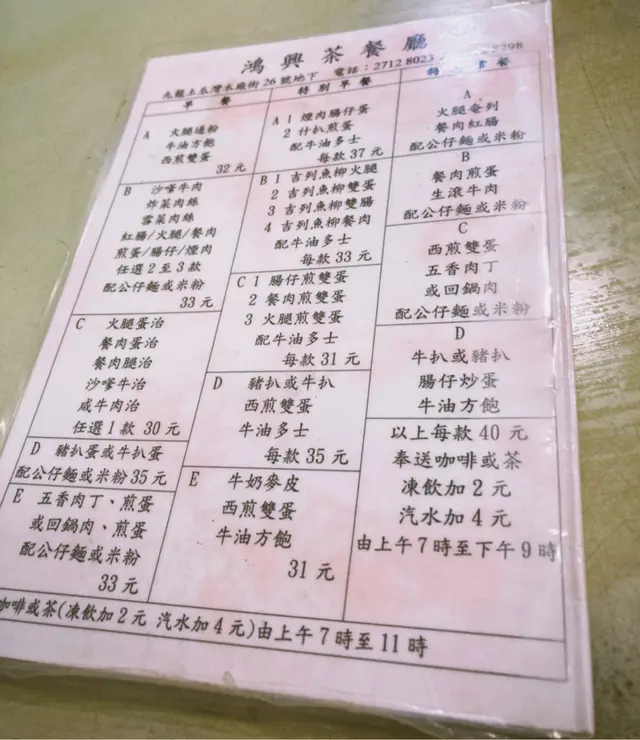 鴻興茶餐廳
九龍土瓜灣木廠街26號地下 電話:2712 8023
早餐
A 火腿通粉
牛油方飽
西煎雙蛋
32元
B 沙嗲牛肉
炸菜肉絲
雪菜肉絲
紅腸/火腿/餐肉
煎蛋/腸仔/煙肉
任選2至3款
配公仔麵或米粉
33元
C 火腿蛋治
餐肉蛋治
餐肉腿治
沙嗲牛治
咸牛肉治
任選1款 30元
D 豬扒蛋或牛扒蛋
配公仔麵或米粉35元
E 五香肉丁、煎蛋
或回鍋肉、煎蛋
配公仔麵或米粉
33元
特別早餐
A 1 煙肉腸仔蛋
2 什扒煎蛋
配牛油多士
每款37元
B 1 吉列魚柳火腿
2 吉列魚柳雙蛋
3 吉列魚柳雙腸
4 吉列魚柳餐肉
配牛油多士
每款33元
C 1 腸仔煎雙蛋
2 餐肉煎雙蛋
3 火腿煎雙蛋
配牛油多士
每款31元
D 豬扒或牛扒
西煎雙蛋
牛油多士
每款35元
E 牛奶麥皮
西煎雙蛋
牛油方飽
31元
特 餐
A
火腿奄列
餐肉紅腸
配公仔麵或米粉
B
餐肉煎蛋
生滾牛肉
配公仔麵或米粉
C
西煎雙蛋
五香肉丁
或回鍋肉
配公仔麵或米粉
D
牛扒或豬扒
腸仔炒蛋
牛油方飽
以上每款40元
奉送咖啡或茶
凍飲加2元
汽水加4元
由上午7時至下午9時
咖啡或茶(凍飲加2元 汽水加4元)由上午7時至11時